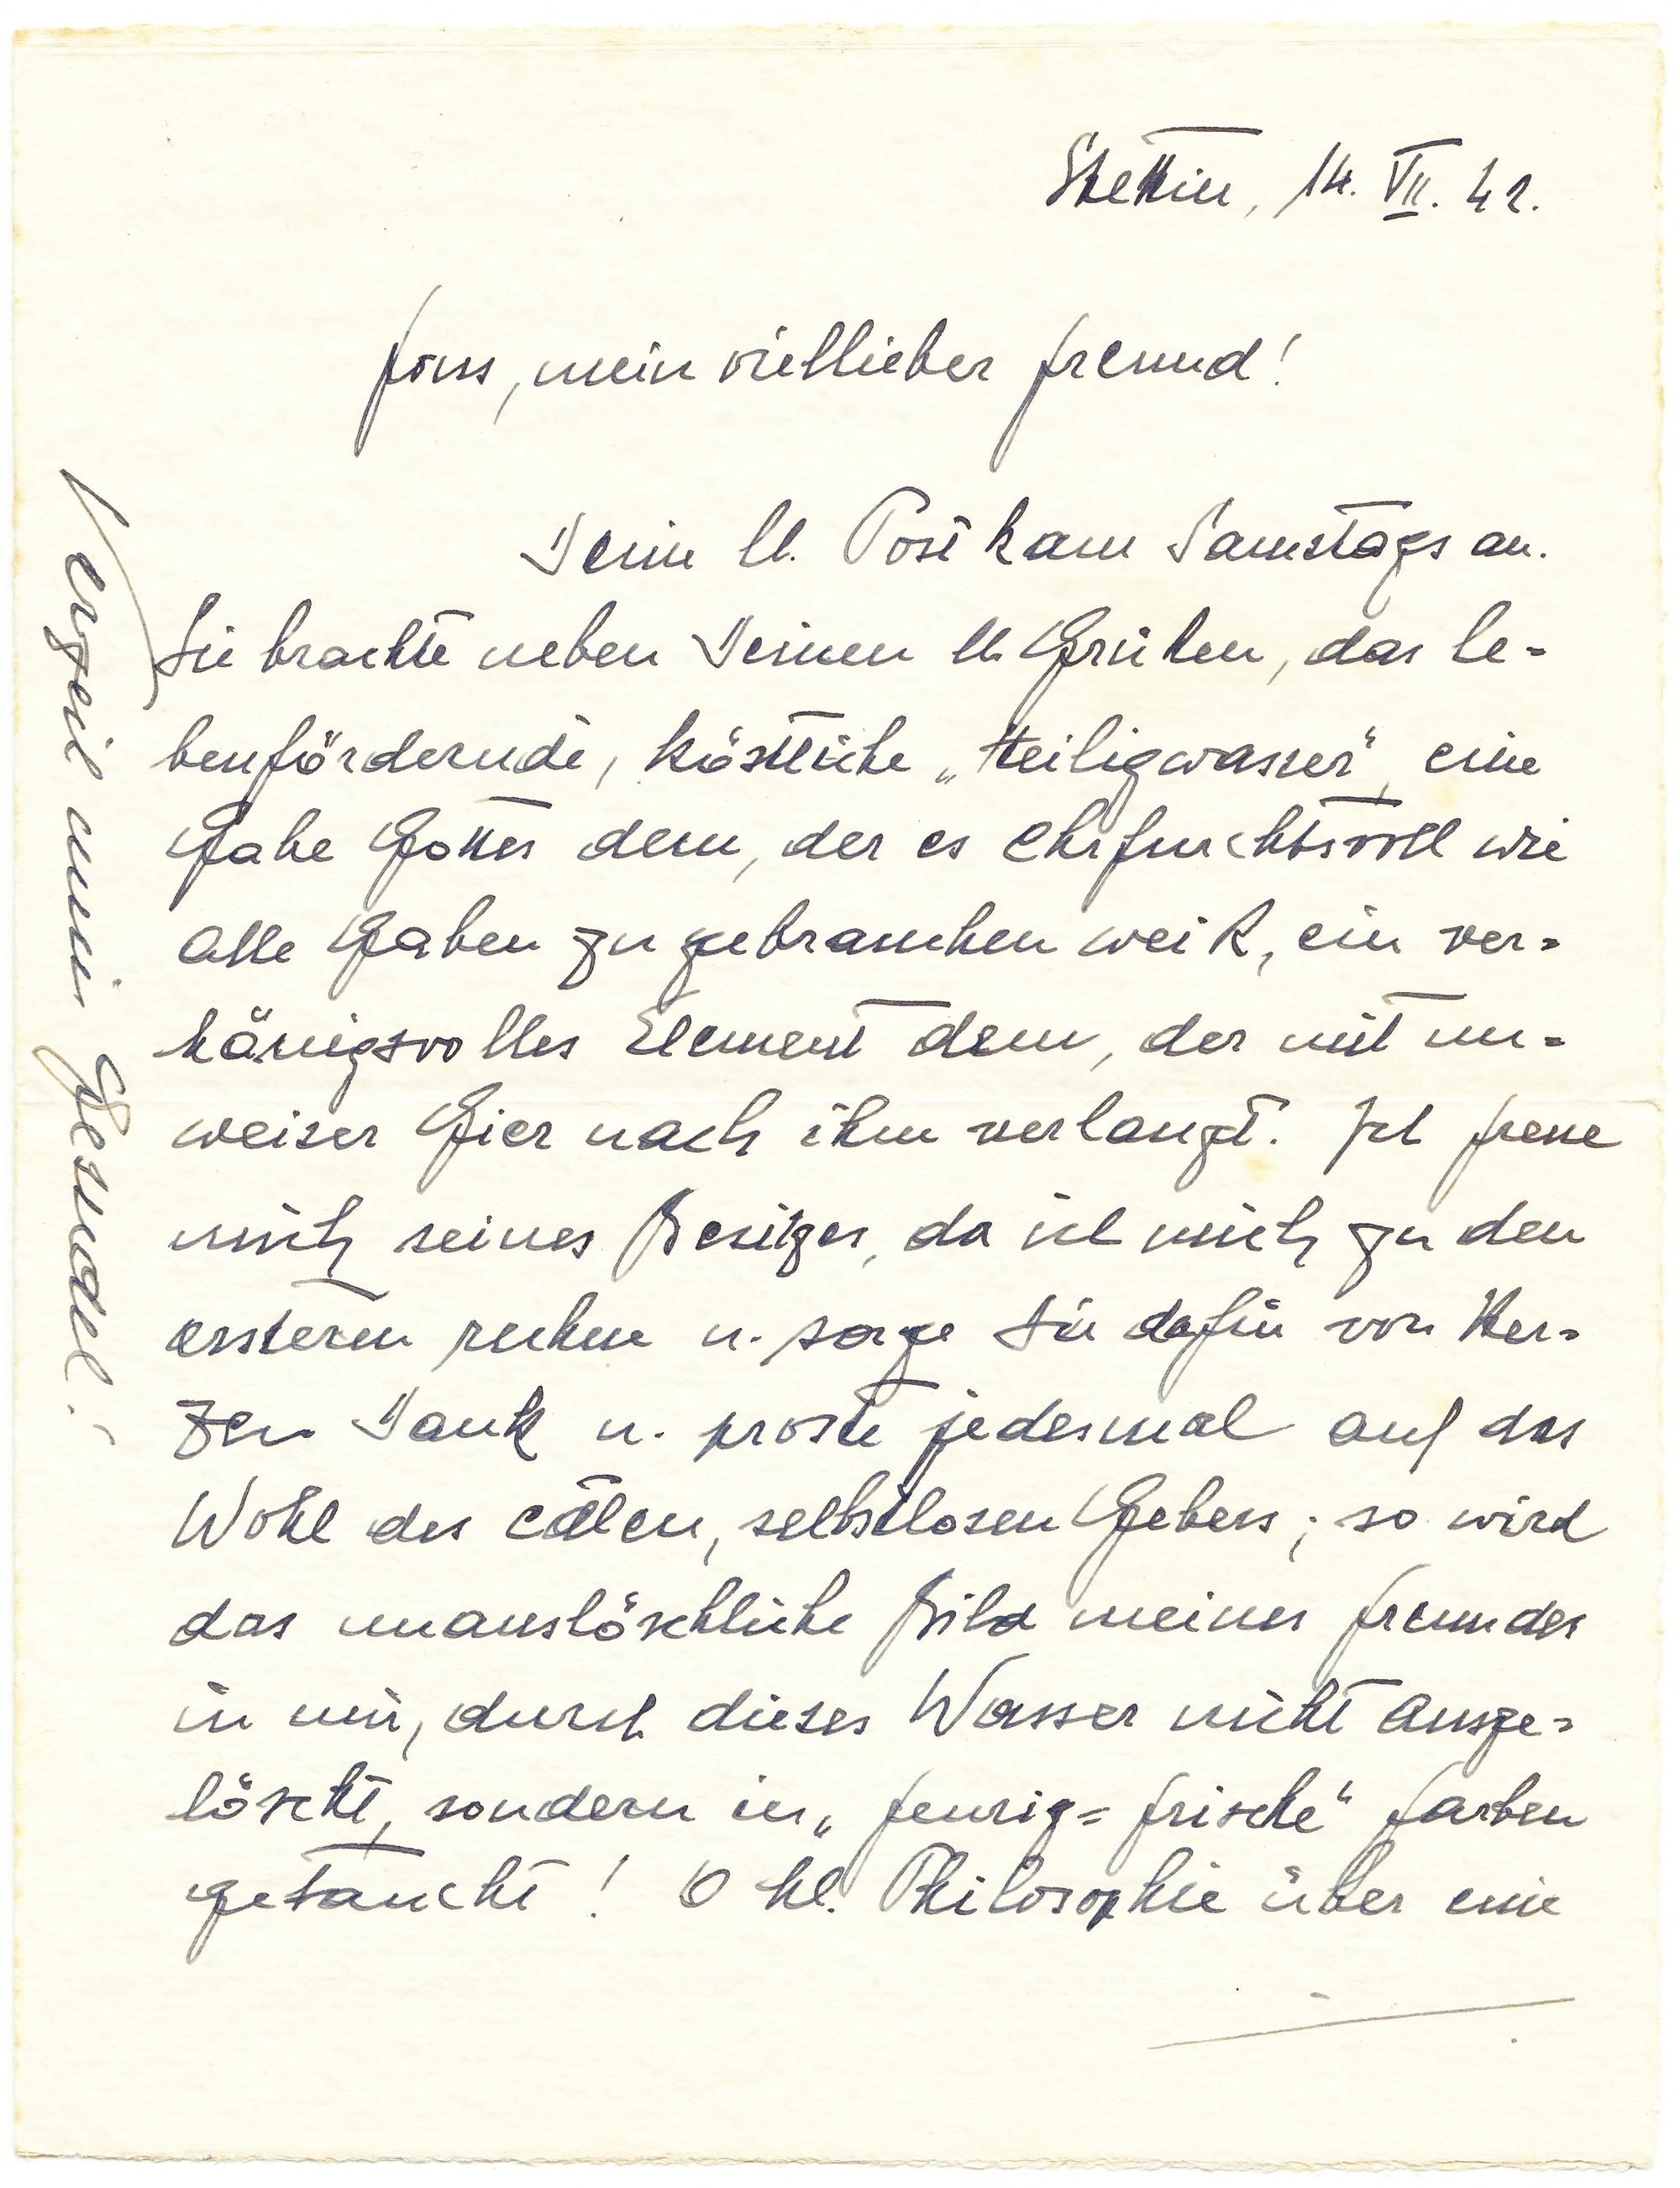 Stettin, 14. VII. 42.
Fons, mein viellieber Freund!
Deine ll. Post kam Samstags an.
Sie brachte neben Deinen ll. Grüßen, das le-
benfördernde, köstliche „Heiligwasser“, eine
Gabe Gottes dem, der es ehrfurchtsvoll wie
alle Gaben zu gebrauchen weiß, ein ver-
hängisvolles Element dem, der mit un-
weiser Gier nach ihm verlangt. Ich freue
mich seines Besitzes, da ich mich zu den
ersteren rechne u. sage Dir dafür von Her-
zen Dank u. proste jedesmal auf das
Wohl des edlen, selbstlosen Gebers; so wird
das unauslöschliche Bild meines Freundes
in mir, durch dieses Wasser nicht ausge-
löscht, sondern in „feurig-frische“ Farben
getaucht! O hl. Philosophie über eine
Verzeih mein Gesudel!